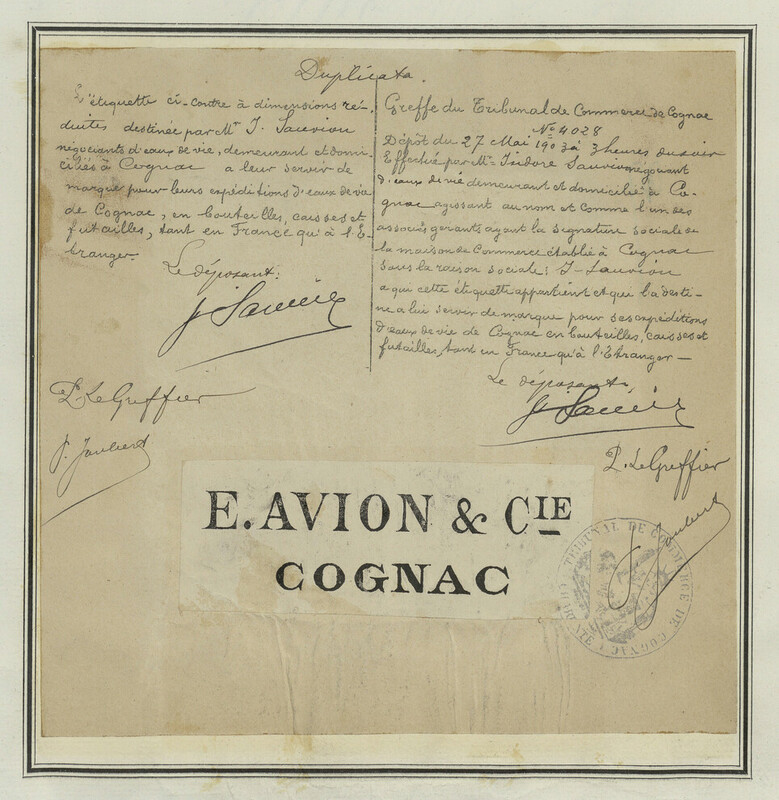 Duplicata.
L'étiquette ci-contre à dimensions ré-
duites destinée par Mr J. Sauvion
négociants d'eaux de vie, demeurant et domi-
ciliés à Cognac a leur servir de
marque pour leurs expéditions d'eaux de vie
de Cognac, en bouteilles, caisses et
futailles, tant en France qu'à l'E-
tranger.
Le déposant:
J. Sauvion
P. Le Greffier
J. Joubert
Greffe du Tribunal de Commerce de Cognac
No 4028
Dépôt du 27 Mai 1903 à 3 heures du soir
Effectué par Mr Isidore Sauvion négociant
d'eaux de vie demeurant et domicilié à Co-
gnac agissant au nom et comme l'un des
associés gérants ayant la signature sociale de
la maison de Commerce établie à Cognac
sous la raison sociale: J. Sauvion
a qui cette étiquette appartient et qui l'a desti-
née a lui servir de marque pour ses expéditions
d'eaux de vie de Cognac en bouteilles, caisses et
futailles, tant en France qu'à l'Etranger—
Le déposant,
J. Sauvion
P. Le Greffier
Joubert
E. AVION & CIE
COGNAC
TRIBUNAL DE COMMERCE DE COGNAC
CHARENTE